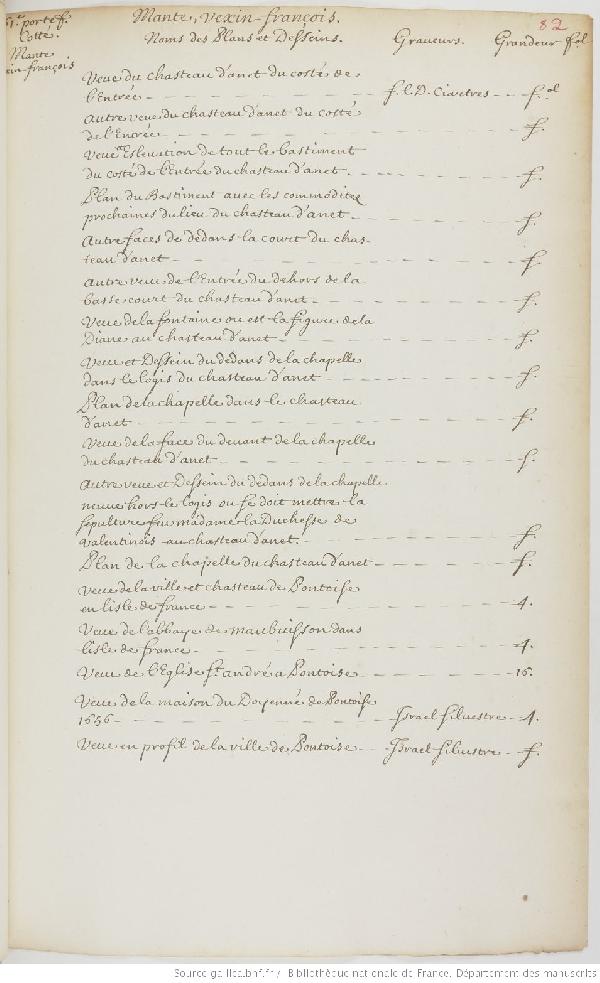 Mante, Vexin-françois. 82
51.e portef. Noms des Plans et Desseins. Graveurs. Grandeur fol
Cotté.
Mante
xin-françois
Veue du chasteau d'anet du costé de
l'Entrée — f. l. D. Ciartres — f.ol
Autre veue du chasteau d'anet du costé
de l'Entrée — f.
Veue Esleuation de tout le bastiment
du costé de l'Entrée du chasteau d'anet. — f.
Plan du Bastiment avec les commoditez
prochaines du lieu du chasteau d'anet — f.
Autre faces de dedans la court du chas-
teau d'anet — f.
Autre veue de l'Entrée du dehors de la
basse court du chasteau d'anet — f.
Veue de la fontaine ou est la figure de la
Diane au chasteau d'anet — f.
Veue et Dessein du dedans de la chapelle
dans le logis du chasteau d'anet — f.
Plan de la chapelle dans le chasteau
d'anet — f.
Veue de la face du deuant de la chapelle
du chasteau d'anet — f.
Autre veue et Dessein du dedans de la chapelle
neuue hors le logis ou se doit mettre la
sepulture feu madame la Duchesse de
Valentinois au chasteau d'anet. — f.
Plan de la chapelle du chasteau d'anet — f.
Veue de la ville et chasteau de Pontoise
en lisle de france — 4.
Veue de l'abbaye de maubuisson dans
lisle de france — 4.
Veue de l'Eglise St. andré a Pontoise — 16.
Veue de la maison du Doyenné de Pontoise
1656 — Israel siluestre — 4.
Veue en profil de la ville de Pontoise — Israel siluestre — f.
Source gallica.bnf.fr / Bibliothèque nationale de France. Département des manuscrits